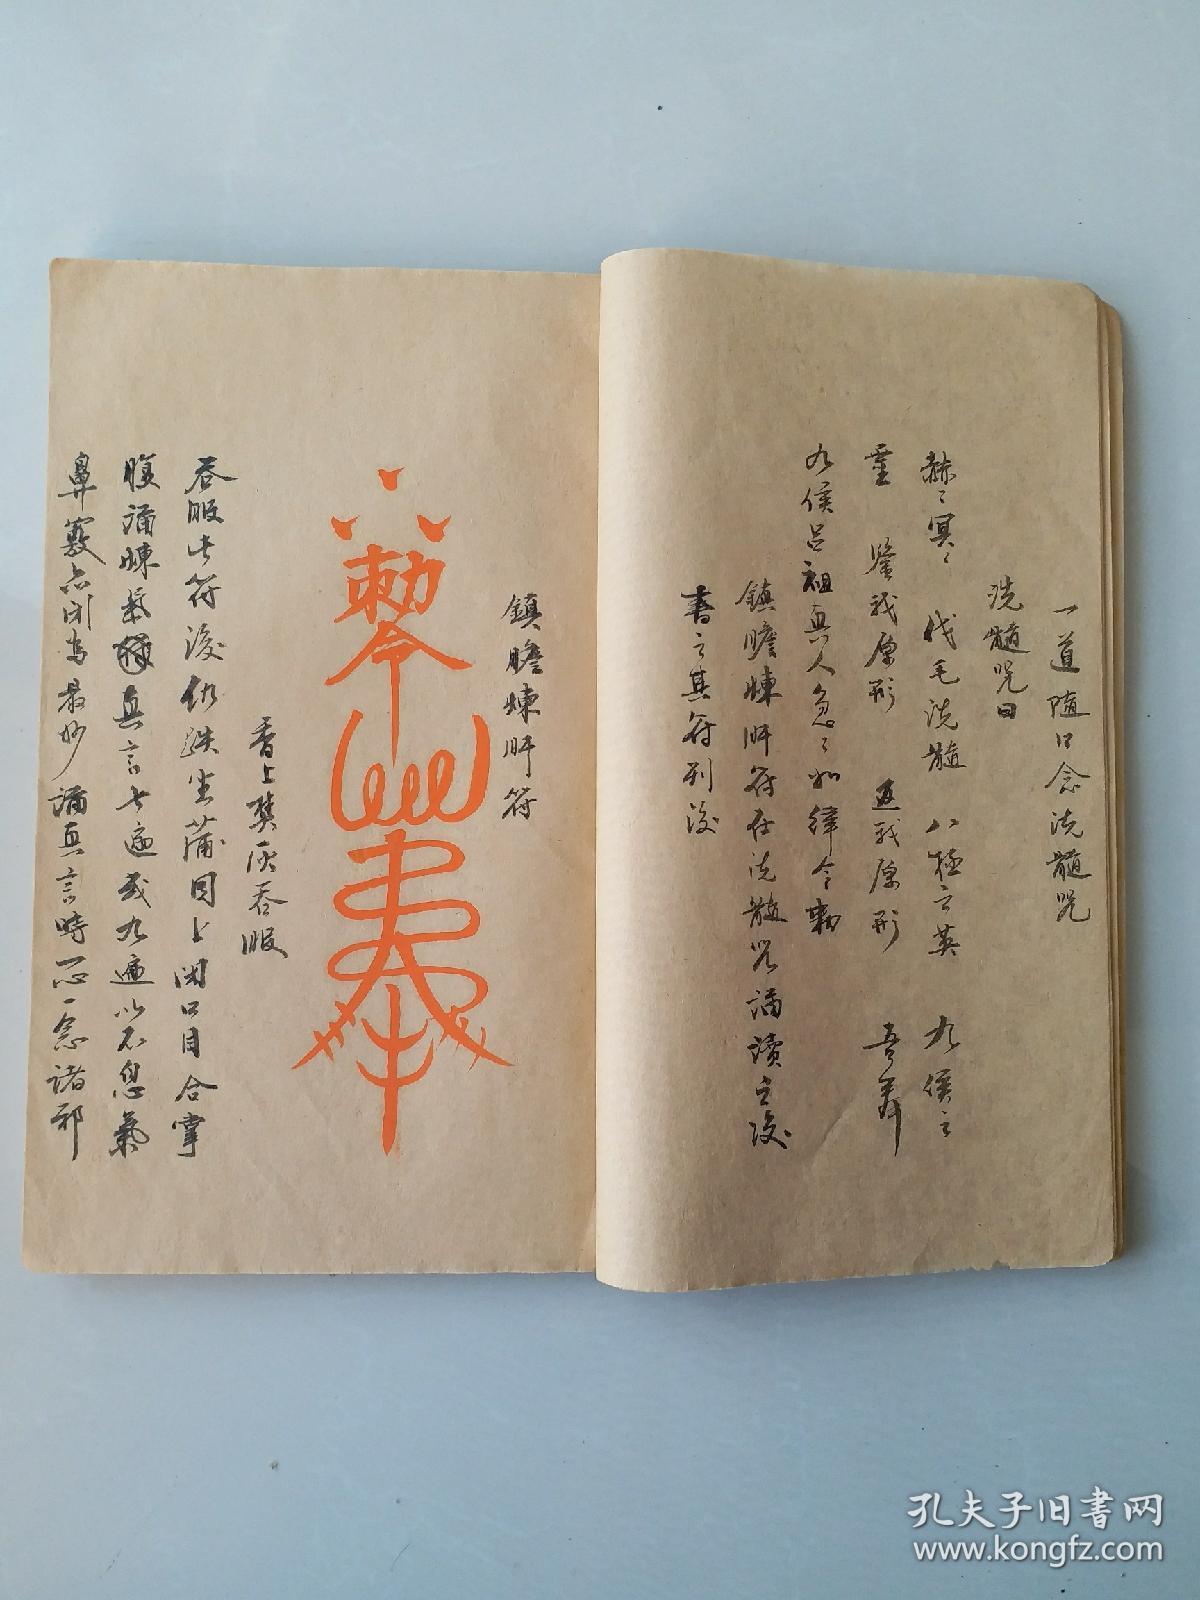 一道随口念洗髓咒
洗髓咒曰
赫々冥々 伐毛洗髓 八極之英 九侯之
灵 鑒我原形 返我原形 吾奉
九侯呂祖真人急々如律令勅
鎮膽煉肝符在洗髓咒誦讀之後
書之其符列後
鎮膽煉肝符
勅令
香上焚灰吞服
吞服此符後仍趺坐蒲团上闭口目合掌
腹誦煉氣真言七遍或九遍以不息氣
鼻竅点闭為最妙誦真言時一心一念諸邪
孔夫子旧书网
www.kongfz.com